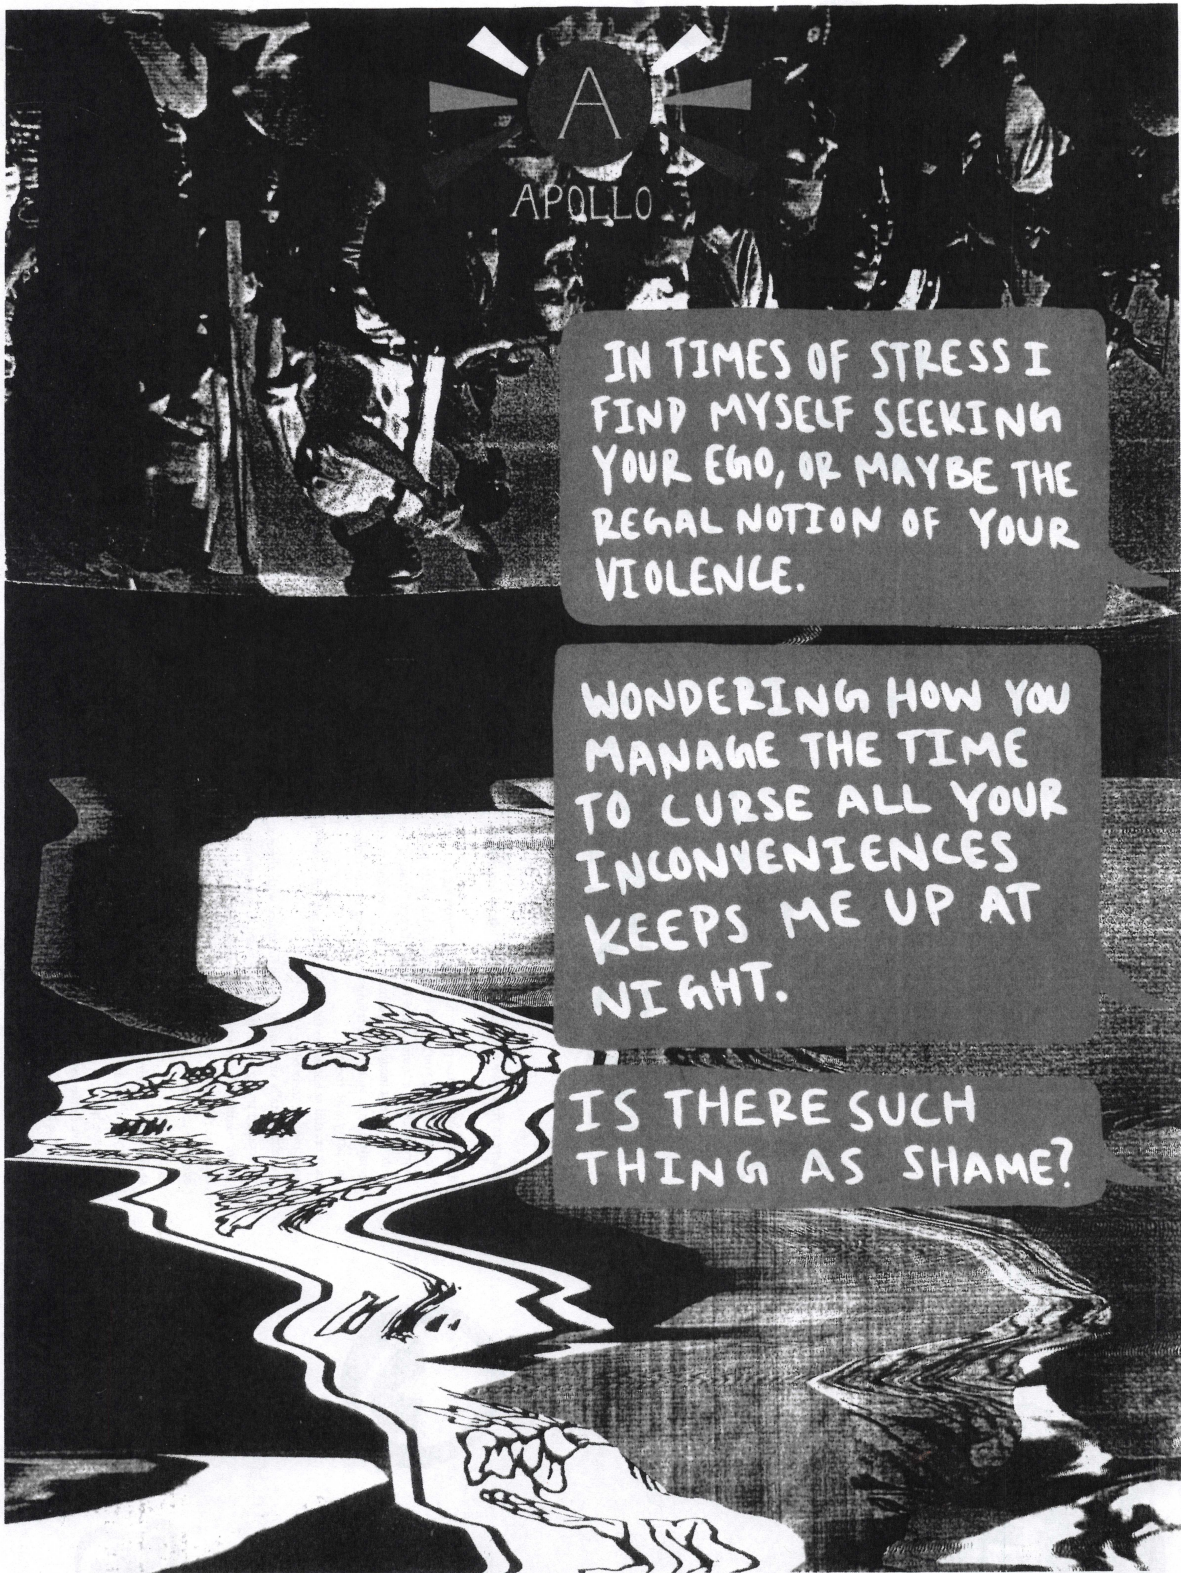 A
APOLLO
IN TIMES OF STRESS I
FIND MYSELF SEEKING
YOUR EGO, OR MAYBE THE
REGAL NOTION OF YOUR
VIOLENCE.
WONDERING HOW YOU
MANAGE THE TIME
TO CURSE ALL YOUR
INCONVENIENCES
KEEPS ME UP AT
NIGHT.
IS THERE SUCH
THING AS SHAME?